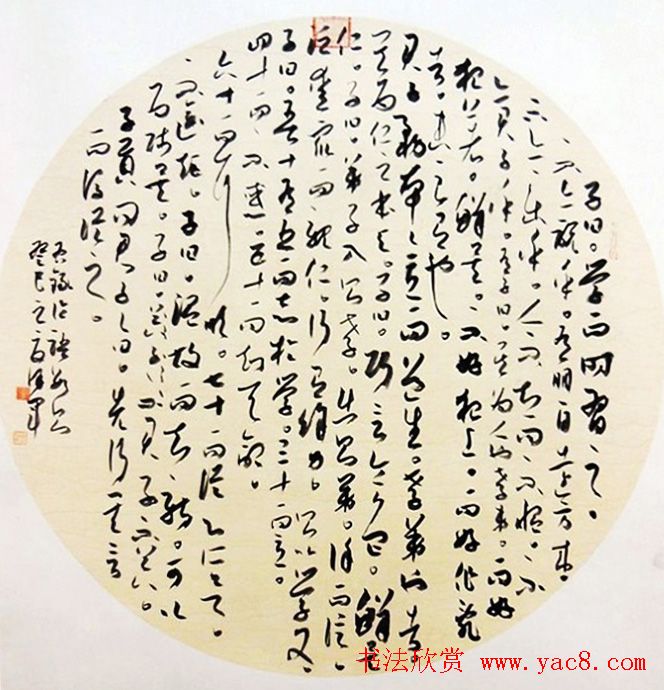 子曰。学而时習之。
不亦说乎。有朋自遠方来。
不亦乐乎。人不知而不愠。不
亦君子乎。有子曰。其为人也孝弟。而好
犯上者。鲜矣。不好犯上。而好作乱
者。未之有也。
君子務本。本立而道生。孝弟也者。
其为仁之本与。子曰。巧言令色。鲜矣
仁。子曰。弟子入则孝。出则弟。谨而信。
泛爱众。而親仁。行有餘力。则以学文。
子曰。吾十有五而志於学。三十而立。
四十而不惑。五十而知天命。
六十而耳
順。七十而從心所欲。
不逾矩。子曰。温故而知新。可以
为师矣。子曰。君子不器。
子貢问君子。子曰。先行其言
而後從之。
癸巳之夏
书法欣赏 www.yac8.com